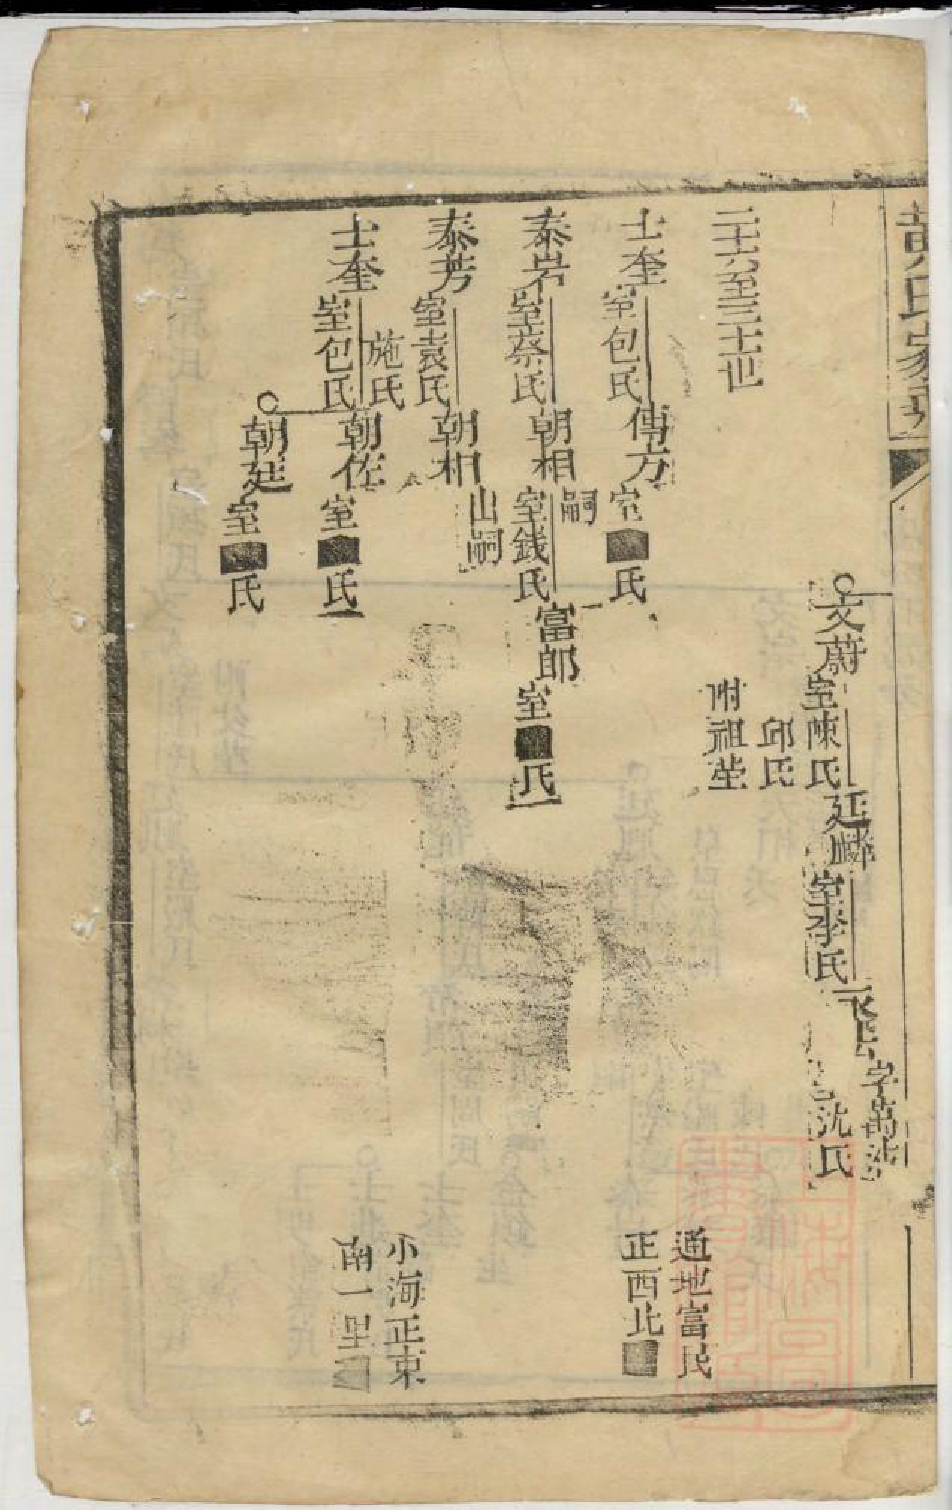 黄氏家
文蔚 室陳氏
邱氏
附祖塋
延麟 室李氏
字萬
沈氏
二十六至三十世
士奎 室包氏
傳方 室■氏
通地富民
正西北■
泰岩 室蔡氏
朝相 嗣
室錢氏
富郎 室■氏
泰芳 室袁氏
施氏
朝相 出嗣
士奎 室包氏
朝佐 室■氏
小海正東
南一里■
朝廷 室■氏